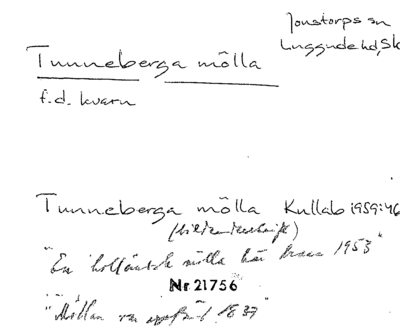 Jonstorps sn
Luggude hd, Sk
Tunneberga mölla
f.d. kvarn
Tunneberga mölla Kullab 1959:46
(bildunderskrift)
"En holländsk mölla här brann 1953"
Nr 21756
"Möllan var uppförd 1837"